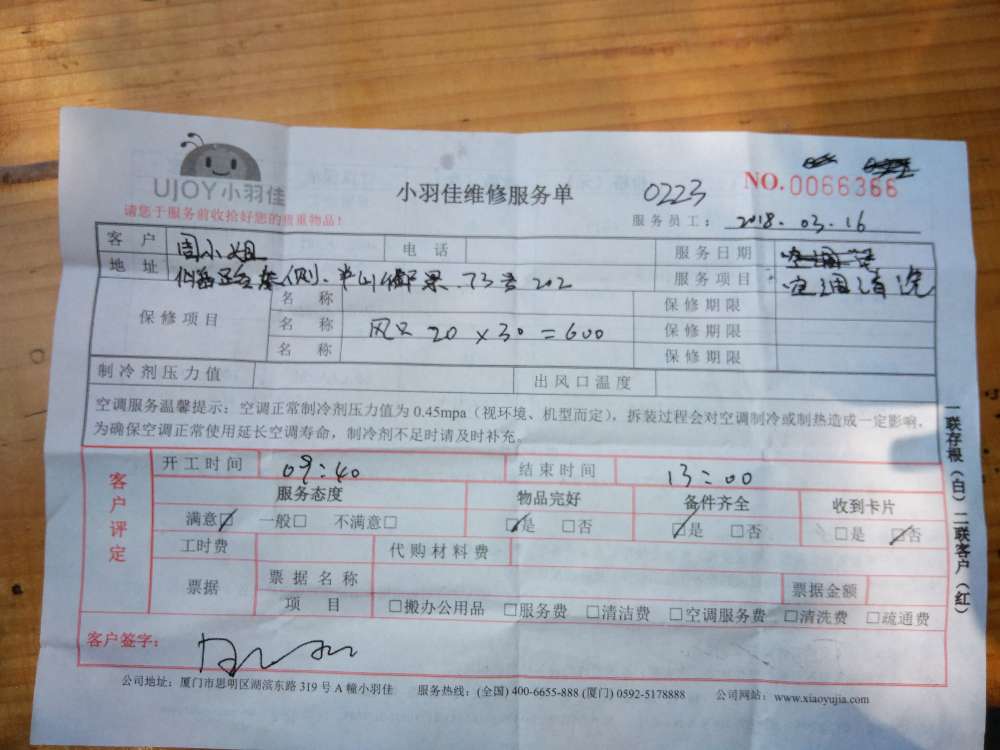 UJOY小羽佳
小羽佳维修服务单
0223
NO.0066366
请您于服务前收拾好您的贵重物品!
服务员工: 2018.03.16
客户 周小姐 电话 服务日期
地址 侧.半山 73号202 服务项目 空调清洗
保修项目 名称 保修期限
名称 风口 20×30=600 保修期限
名称 保修期限
制冷剂压力值 出风口温度
空调服务温馨提示:空调正常制冷剂压力值为 0.45mpa(视环境、机型而定),拆装过程会对空调制冷或制热造成一定影响,
为确保空调正常使用延长空调寿命,制冷剂不足时请及时补充。
一联存根(白)二联客户(红)
客户评定
开工时间 09:40 结束时间 13:00
服务态度 物品完好 备件齐全 收到卡片
满意☑ 一般□ 不满意□ ☑是 □否 ☑是 □否 □是 ☑否
工时费 代购材料费
票据 票据名称 票据金额
项目 □搬办公用品 □服务费 □清洁费 □空调服务费 □清洗费 □疏通费
客户签字:
公司地址:厦门市思明区湖滨东路 319 号 A 幢小羽佳 服务热线:(全国) 400-6655-888 (厦门) 0592-5178888 公司网站:www.xiaoyujia.com